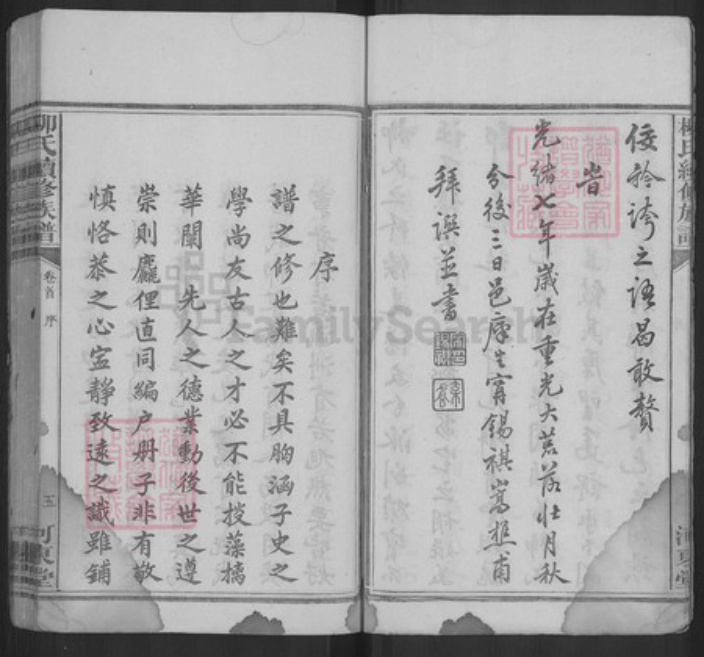 佞矜誇之語曷敢贅
皆
光緒七年歲在重光大荒落壯月秋
分後三日邑庠生甯錫祺嵩樵甫
拜譔並書
柳氏續修族譜
河東堂
序
譜之修也難矣不具胸涵子史之
學尚友古人之才必不能掞藻摛
華闡 先人之德業動後世之遵
崇則龐俚直同編户册子非有敬
慎恪恭之心寍靜致遠之識雖鋪
柳氏續修族譜
卷首 序
五
河東堂
FamilySearch